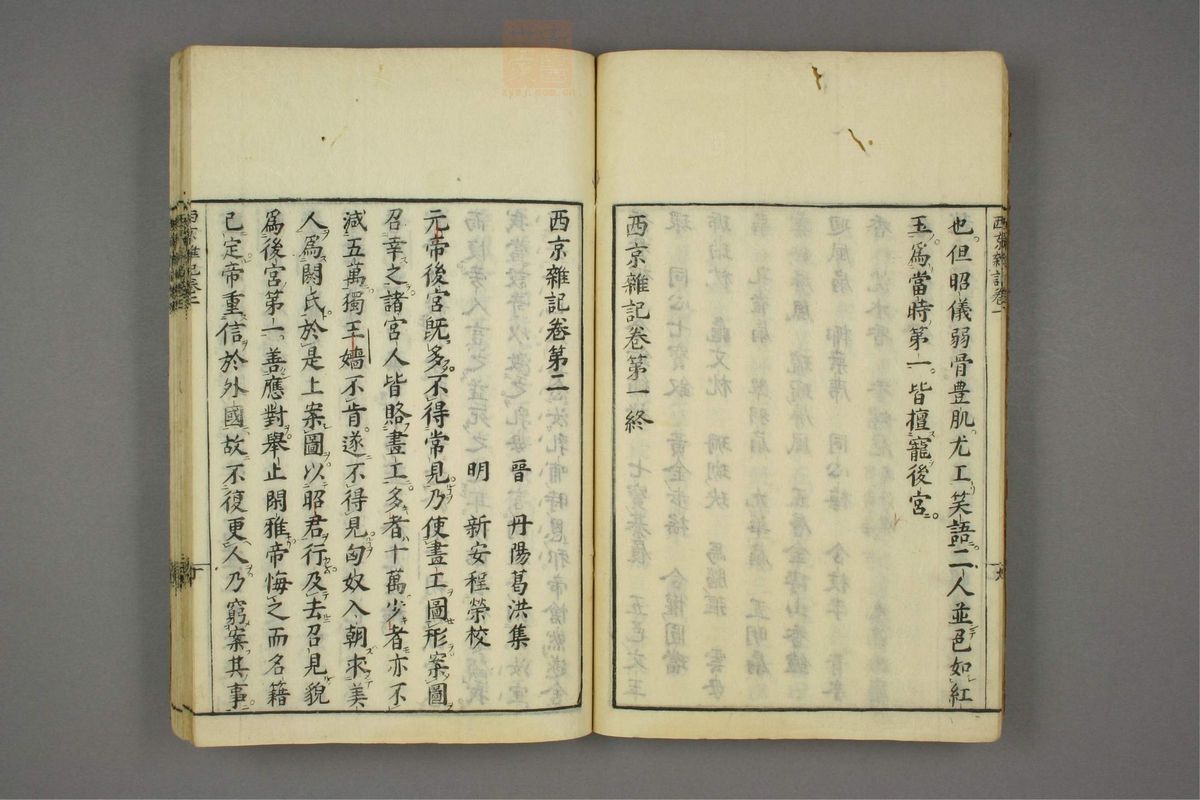 西京雜記卷一
也但昭儀弱骨豊肌尤工笑語二人並色如紅
玉爲當時第一皆擅寵後宮
西京雜記卷第一終
西京雜記卷第二
晉 丹陽葛洪集
明 新安程榮校
元帝後宮既多不得常見乃使畫工圖形案圖
召幸之諸宮人皆賂畫工多者十萬少者亦不
減五萬獨王嬙不肯遂不得見匈奴入朝求美
人爲閼氏於是上案圖以昭君行及去召見貌
爲後宮第一善應對舉止閑雅帝悔之而名籍
已定帝重信於外國故不復更人乃窮案其事